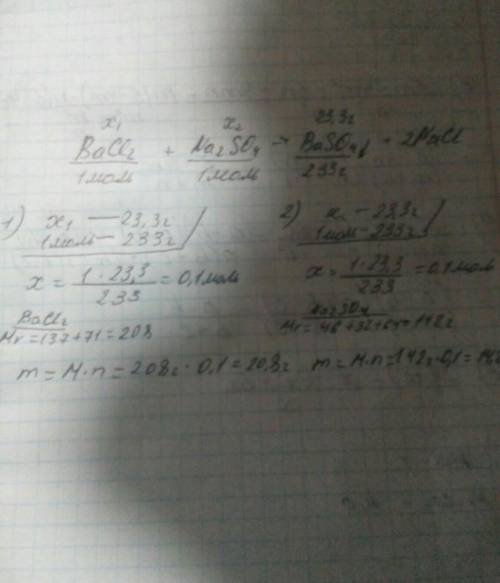 x₁ x₂ 23,3г
BaCl₂ + Na₂SO₄ → BaSO₄↓ + 2NaCl
1моль 1моль 233г
1) x₁ — 23,3г
1моль — 233г
x = 1·23,3 / 233 = 0,1моль
BaCl₂
Mr = 137+71 = 208
m = M·n = 208г·0,1 = 20,8г
2) x — 23,3г
1моль — 233г
x = 1·23,3 / 233 = 0,1моль
Na₂SO₄
Mr = 46+32+64 = 142г
m = M·n = 142г·0,1 =